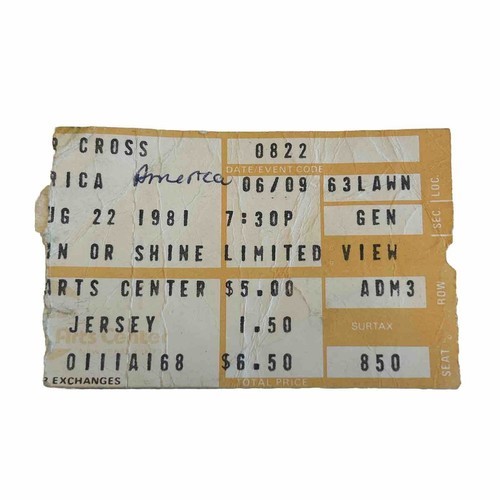 R CROSS 0822
DATE/EVENT CODE
RICA America 06/09 63LAWN LOC.
UG 22 1981 7:30P GEN SEC
IN OR SHINE LIMITED VIEW
ARTS CENTER $5.00 ADM3 ROW
JERSEY 1.50 SURTAX
Arts Center
0111A168 $6.50 850 SEAT
EXCHANGES TOTAL PRICE